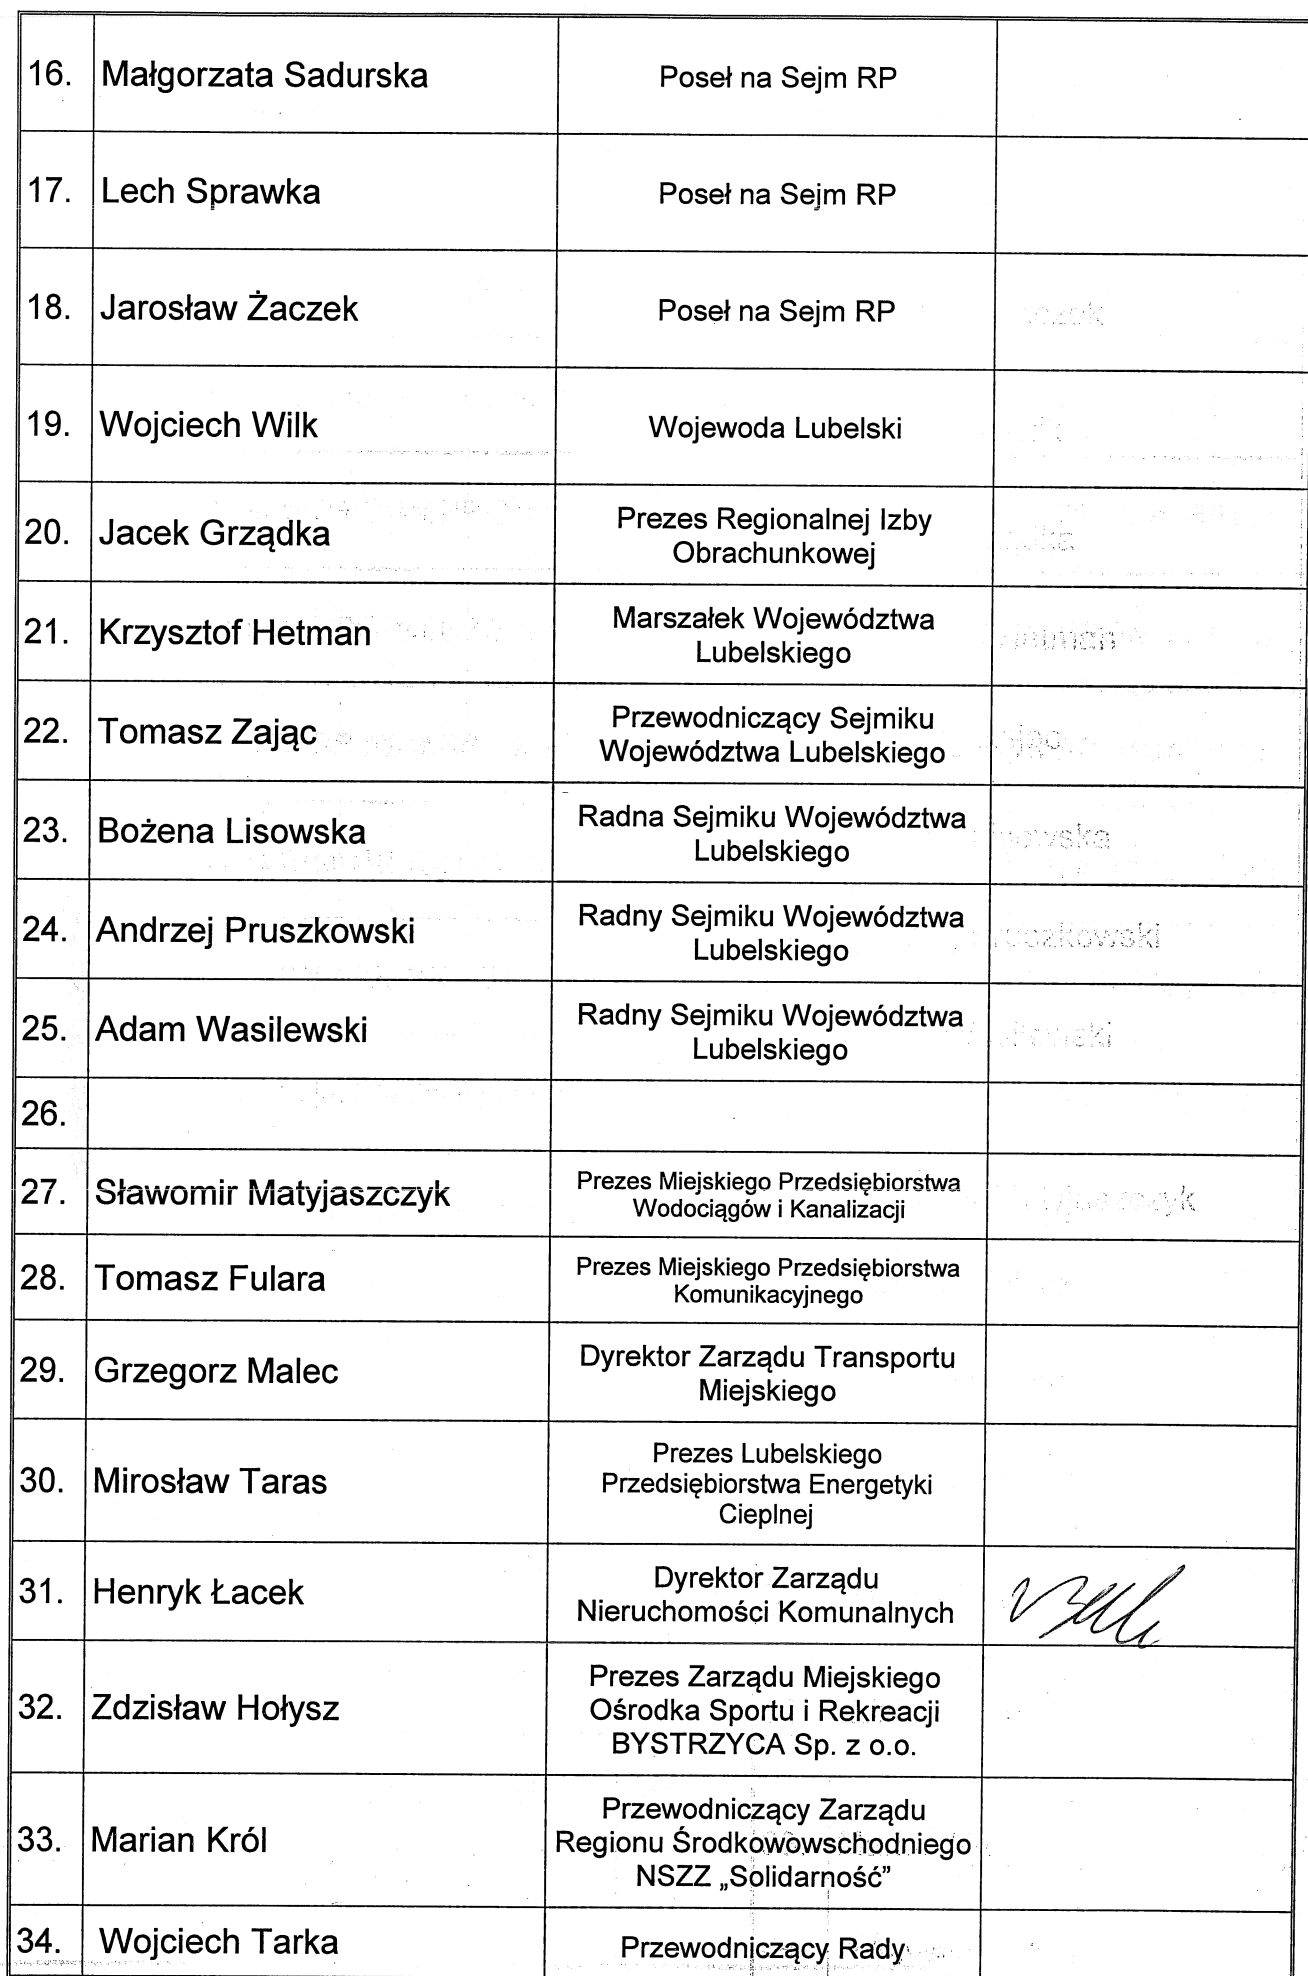 16. Małgorzata Sadurska Poseł na Sejm RP
17. Lech Sprawka Poseł na Sejm RP
18. Jarosław Żaczek Poseł na Sejm RP
19. Wojciech Wilk Wojewoda Lubelski
20. Jacek Grządka Prezes Regionalnej Izby
Obrachunkowej
21. Krzysztof Hetman Marszałek Województwa
Lubelskiego
22. Tomasz Zając Przewodniczący Sejmiku
Województwa Lubelskiego
23. Bożena Lisowska Radna Sejmiku Województwa
Lubelskiego
24. Andrzej Pruszkowski Radny Sejmiku Województwa
Lubelskiego
25. Adam Wasilewski Radny Sejmiku Województwa
Lubelskiego
26.
27. Sławomir Matyjaszczyk Prezes Miejskiego Przedsiębiorstwa
Wodociągów i Kanalizacji
28. Tomasz Fulara Prezes Miejskiego Przedsiębiorstwa
Komunikacyjnego
29. Grzegorz Malec Dyrektor Zarządu Transportu
Miejskiego
30. Mirosław Taras Prezes Lubelskiego
Przedsiębiorstwa Energetyki
Cieplnej
31. Henryk Łacek Dyrektor Zarządu
Nieruchomości Komunalnych
32. Zdzisław Hołysz Prezes Zarządu Miejskiego
Ośrodka Sportu i Rekreacji
BYSTRZYCA Sp. z o.o.
33. Marian Król Przewodniczący Zarządu
Regionu Środkowowschodniego
NSZZ „Solidarność”
34. Wojciech Tarka Przewodniczący Rady